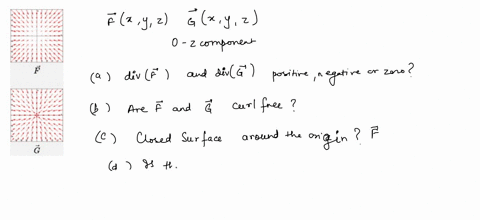 F⃗(x,y,z) G⃗(x,y,z)
0 - z component
(a) div(F⃗) and div(G⃗) positive, negative or zero?
(b) Are F⃗ and G⃗ curl free?
(c) Closed Surface around the origin? F⃗
(d) Is th.
F⃗
G⃗